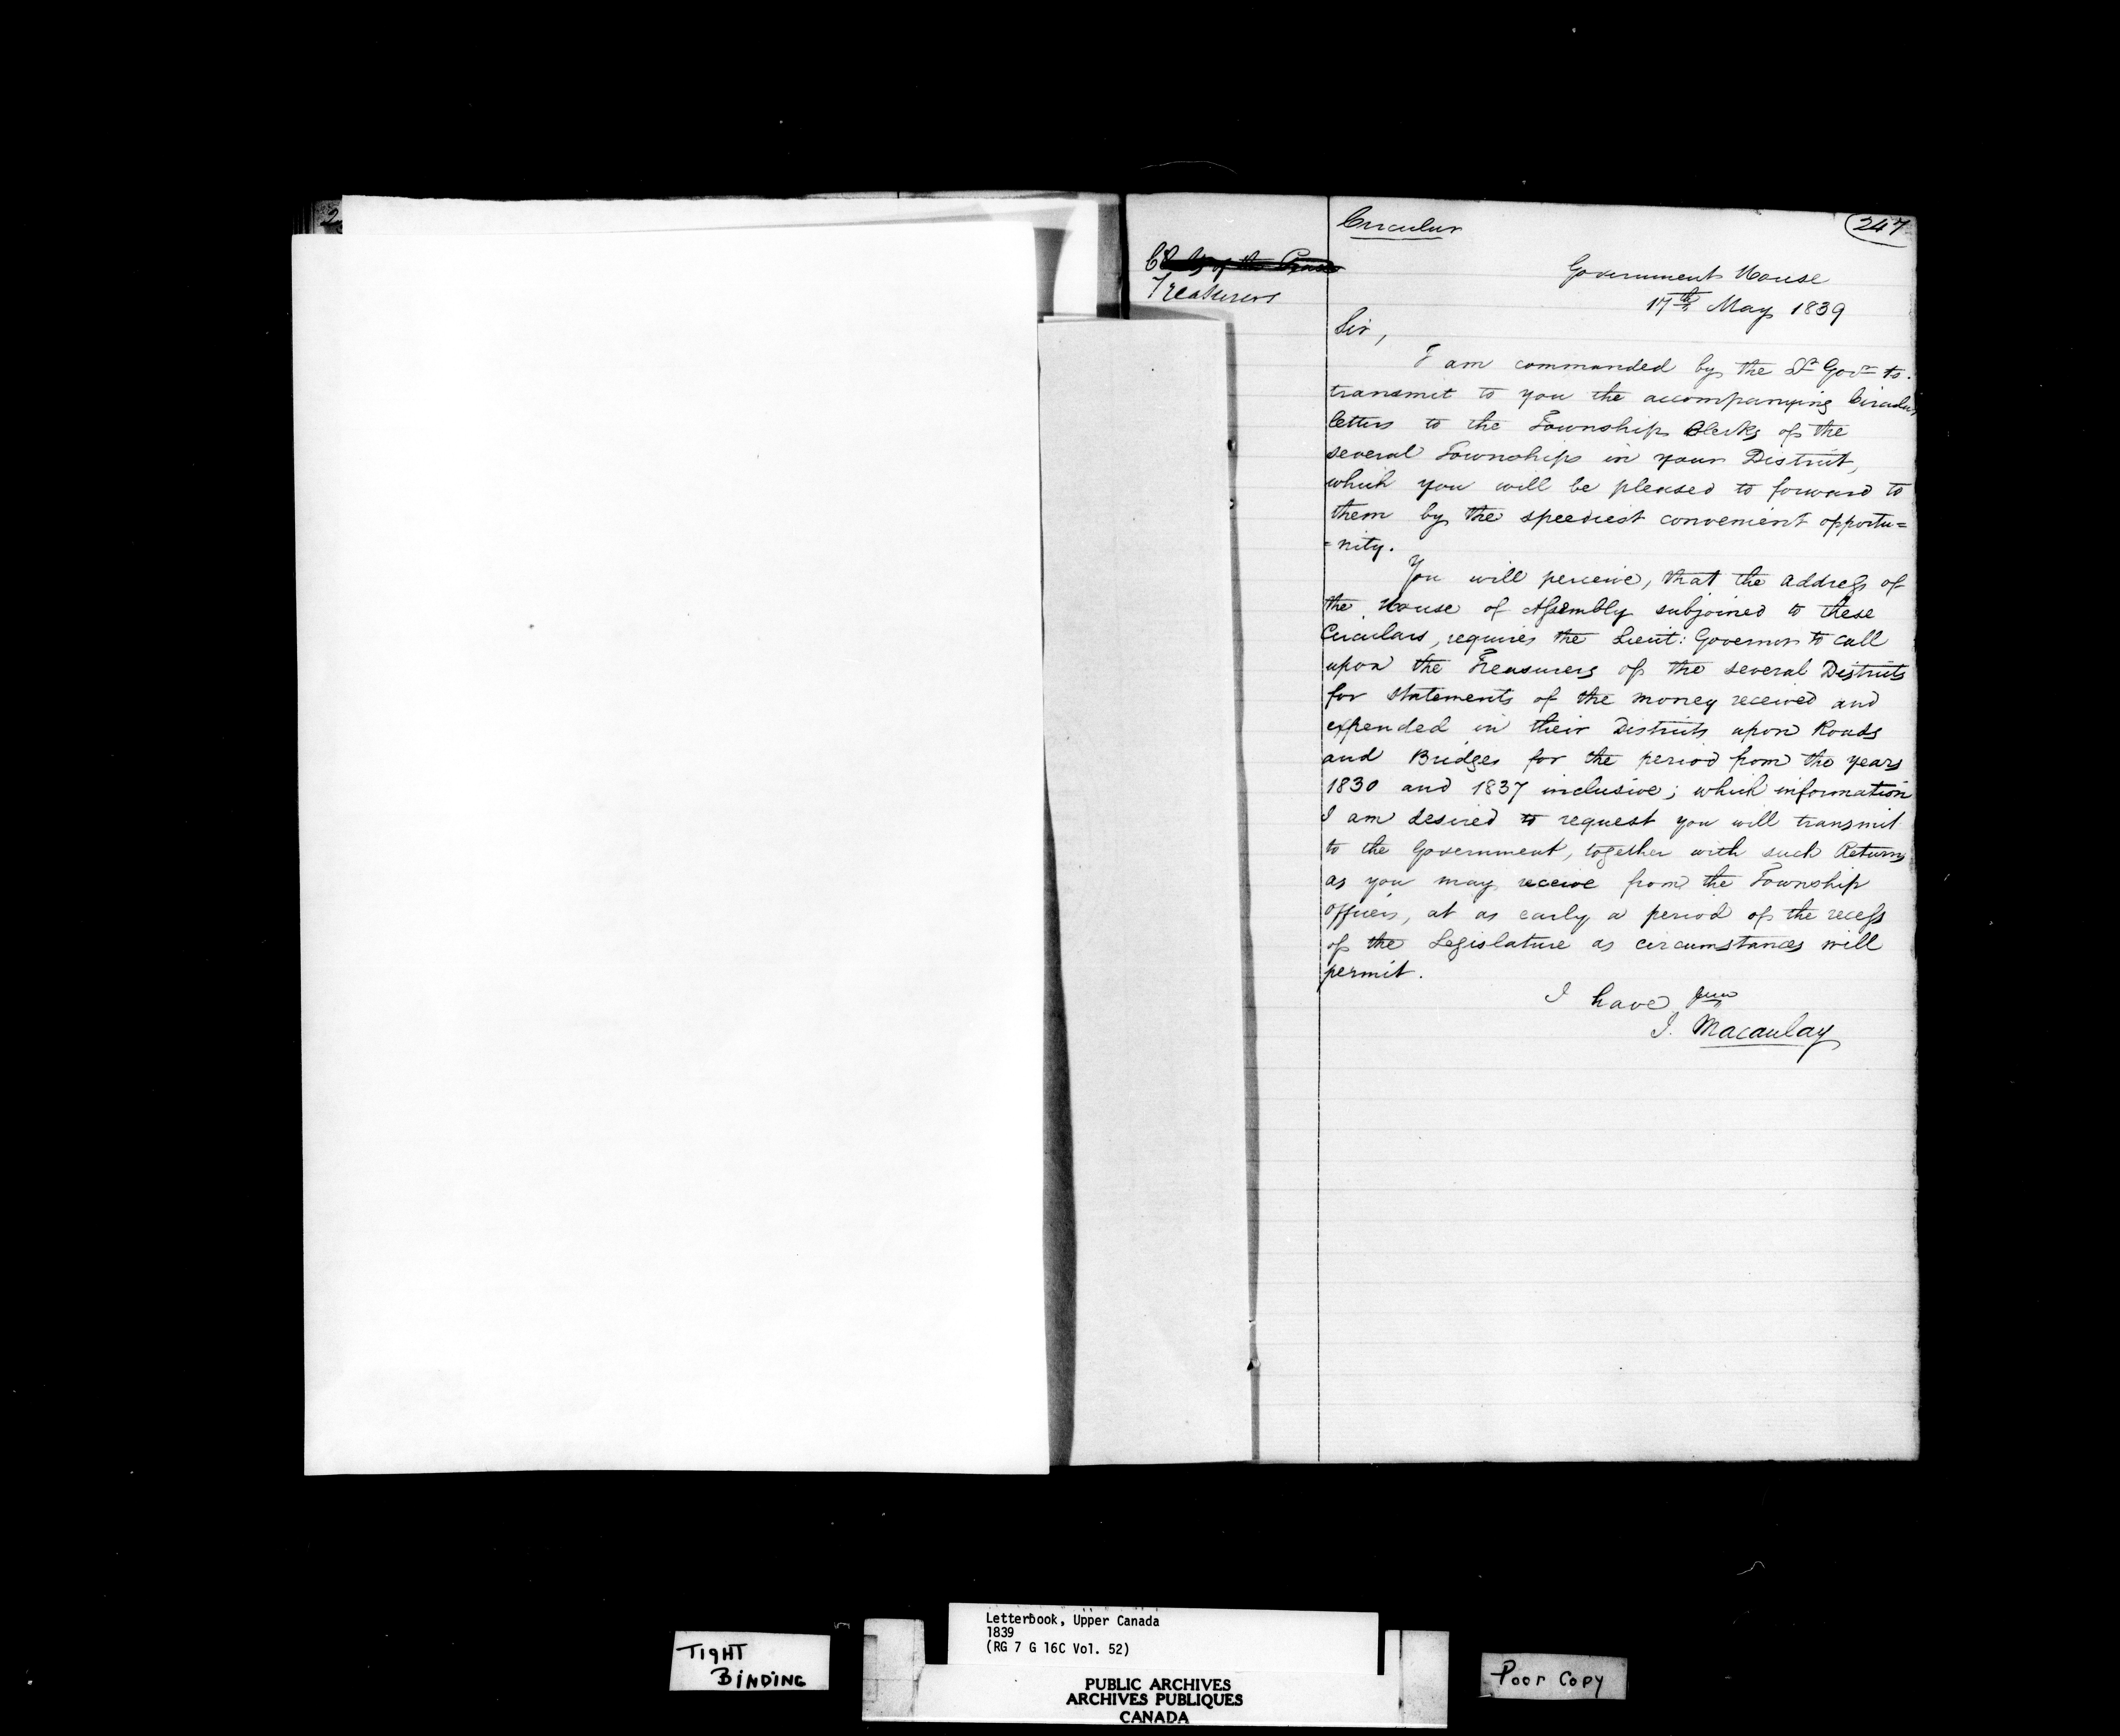 2
Circular
247
Treasurers
Government House
17th May 1839
Sir,
I am commanded by the Lt Govr to
transmit to you the accompanying Circular
letters to the Township Clerks of the
several Townships in your District,
which you will be pleased to forward to
them by the speediest convenient opportu=
=nity.
You will perceive, that the address of
the House of Assembly subjoined to these
Circulars, requires the Lieut: Governor to call
upon the Treasurers of the several Districts
for statements of the money received and
expended in their Districts upon Roads
and Bridges for the period from the years
1830 and 1837 inclusive; which information
I am desired to request you will transmit
to the Government, together with such Returns
as you may receive from the Township
Officers, at as early a period of the recess
of the Legislature as circumstances will
permit.
I have
J. Macaulay
Letterbook, Upper Canada
1839
(RG 7 G 16C Vol. 52)
TIGHT
BINDING
PUBLIC ARCHIVES
ARCHIVES PUBLIQUES
CANADA
Poor Copy